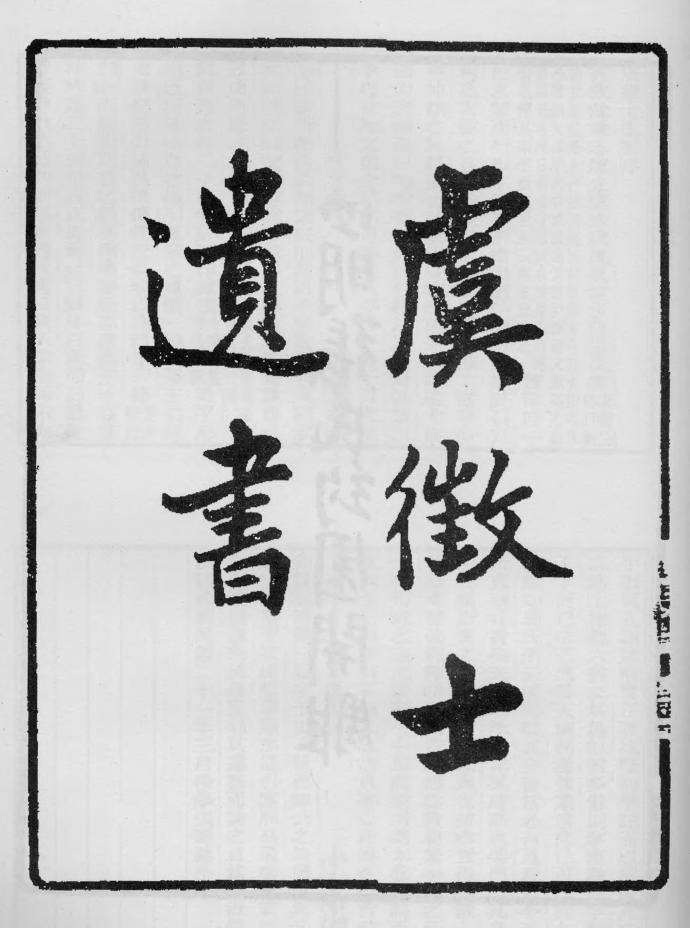 虞徵士
遺書